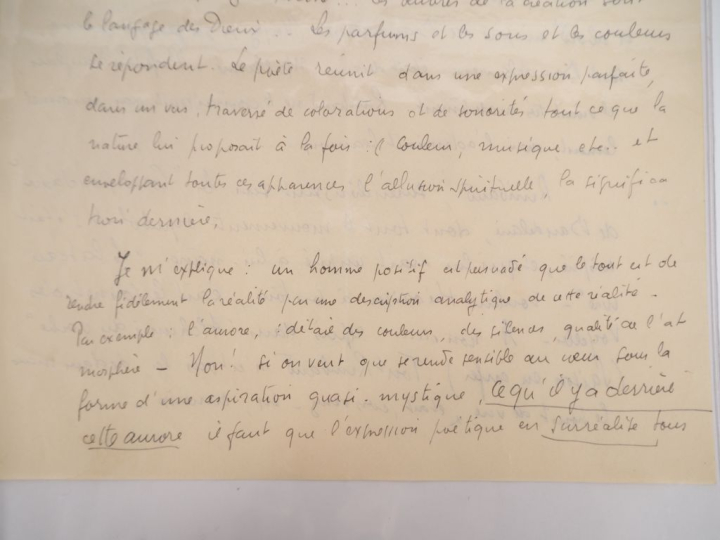 les œuvres de la création sont
le langage des Dieux... Les parfums et les sons et les couleurs
se répondent. Le poète réunit dans une expression parfaite,
dans un vers, traversé de colorations et de sonorités tout ce que la
nature lui proposait à la fois : (couleur, musique etc.. et
enveloppant toutes ces apparences l'allusion spirituelle la significa
tion dernière.
Je m'explique : un homme positif est persuadé que le tout est de
rendre fidèlement la réalité par une description analytique de cette réalité.
Par exemple : l'aurore, : détail des couleurs, des silences, qualité de l'at
mosphère — Non! si on veut que se rende sensible au cœur sous la
forme d'une aspiration quasi-mystique, ce qu'il y a derrière
cette aurore il faut que l'expression poétique en surréalité tous